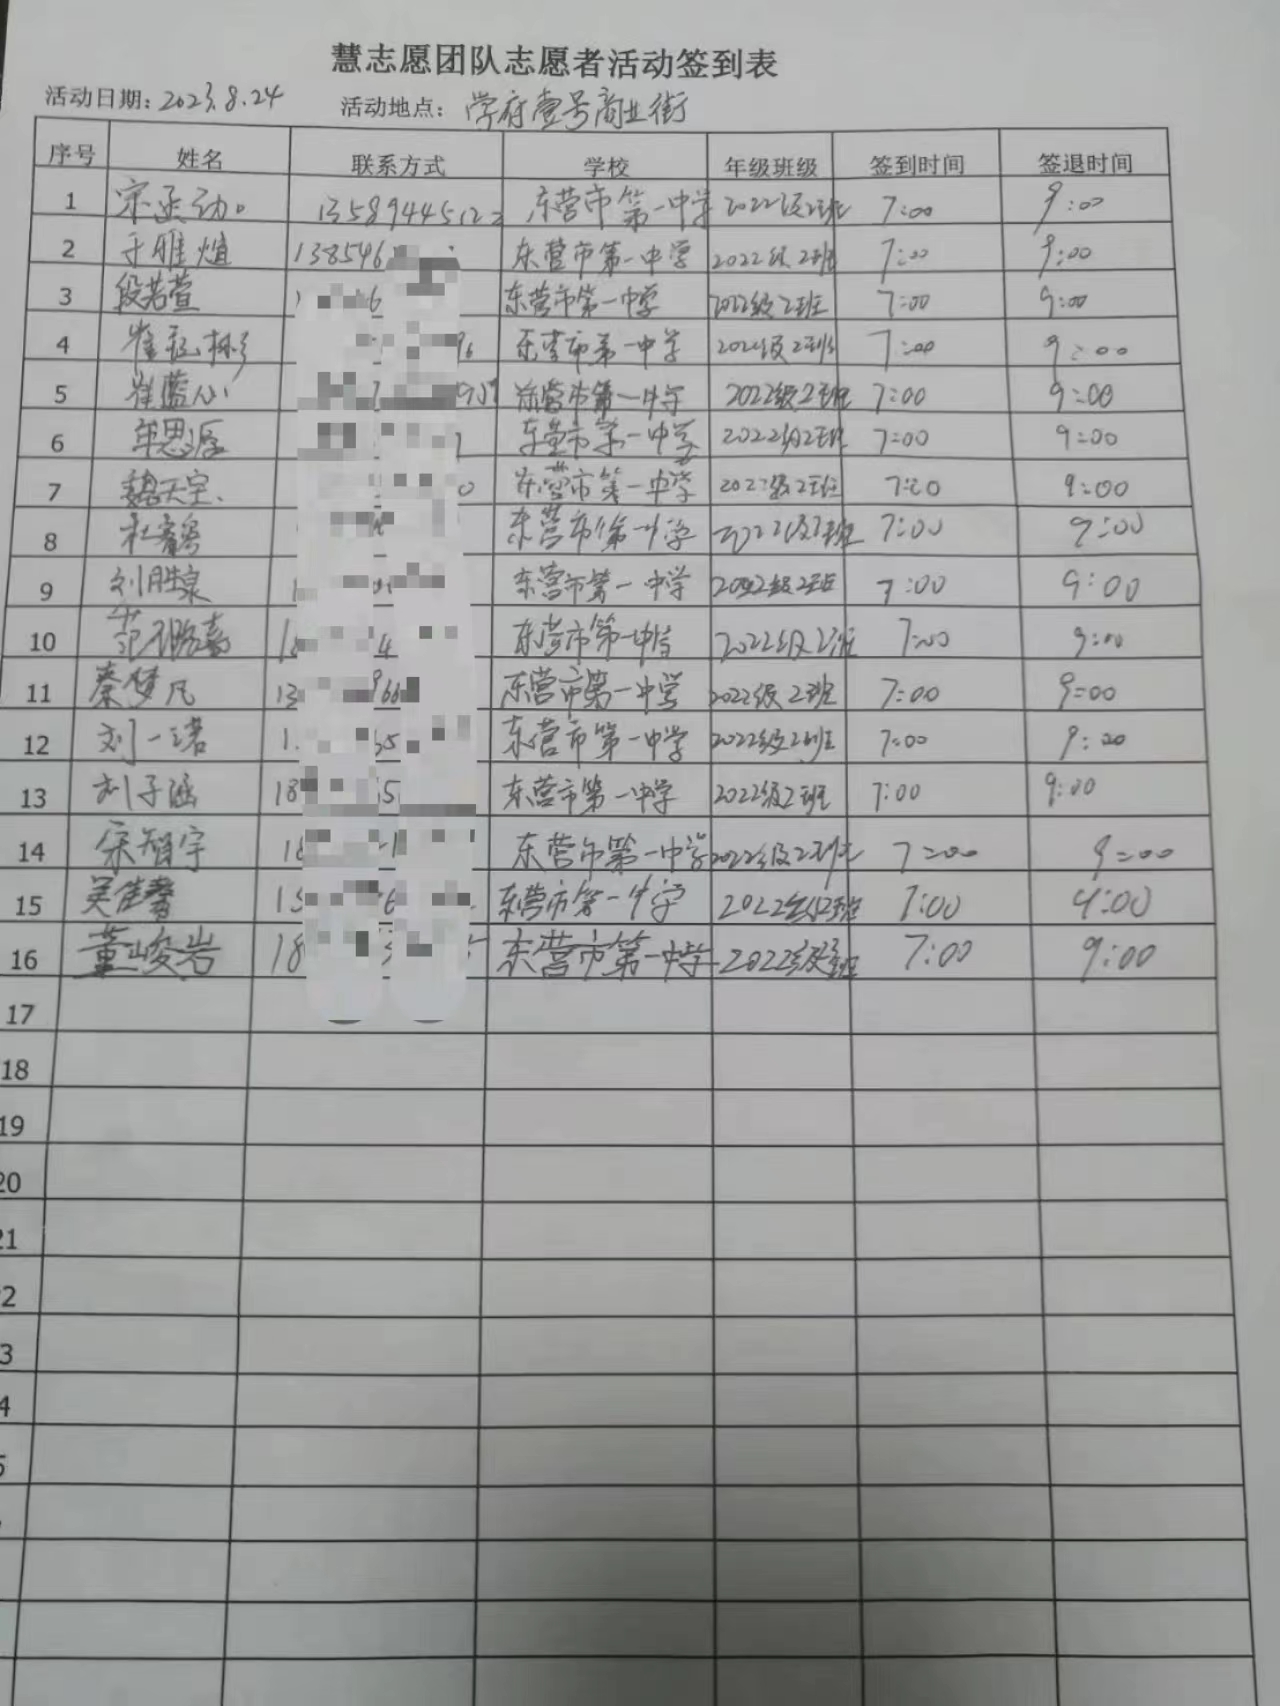 慧志愿团队志愿者活动签到表
活动日期：2023.8.24 活动地点：学府壹号商业街
序号 姓名 联系方式 学校 年级班级 签到时间 签退时间
1 东营市第一中学 2022级2班 7:00 9:00
2 于雅煊 138546 东营市第一中学 2022级2班 7:00 9:00
3 段若萱 东营市第一中学 2022级2班 7:00 9:00
4 东营市第一中学 2022级2班 7:00 9:00
5 崔蓝心 东营市第一中学 2022级2班 7:00 9:00
6 单思源 东营市第一中学 2022级2班 7:00 9:00
7 魏天宝 东营市第一中学 2022级2班 7:00 9:00
8 东营市第一中学 2022级2班 7:00 9:00
9 刘胜泉 东营市第一中学 2022级2班 7:00 9:00
10 东营市第一中学 2022级2班 7:00 9:00
11 秦梦凡 13 东营市第一中学 2022级2班 7:00 9:00
12 刘一诺 东营市第一中学 2022级2班 7:00 9:00
13 刘子涵 18 东营市第一中学 2022级2班 7:00 9:00
14 宋智宇 东营市第一中学 2022级2班 7:00 9:00
15 吴佳馨 15 东营市第一中学 2022级2班 7:00 9:00
16 董峻岩 18 东营市第一中学 2022级2班 7:00 9:00
17
18
19
20
21
2
3
4
5